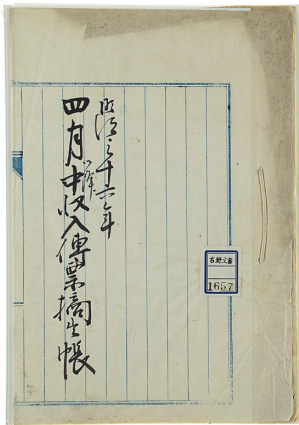 明治三十六年
四月中収入傳票摘 帳
吉野文書
1657